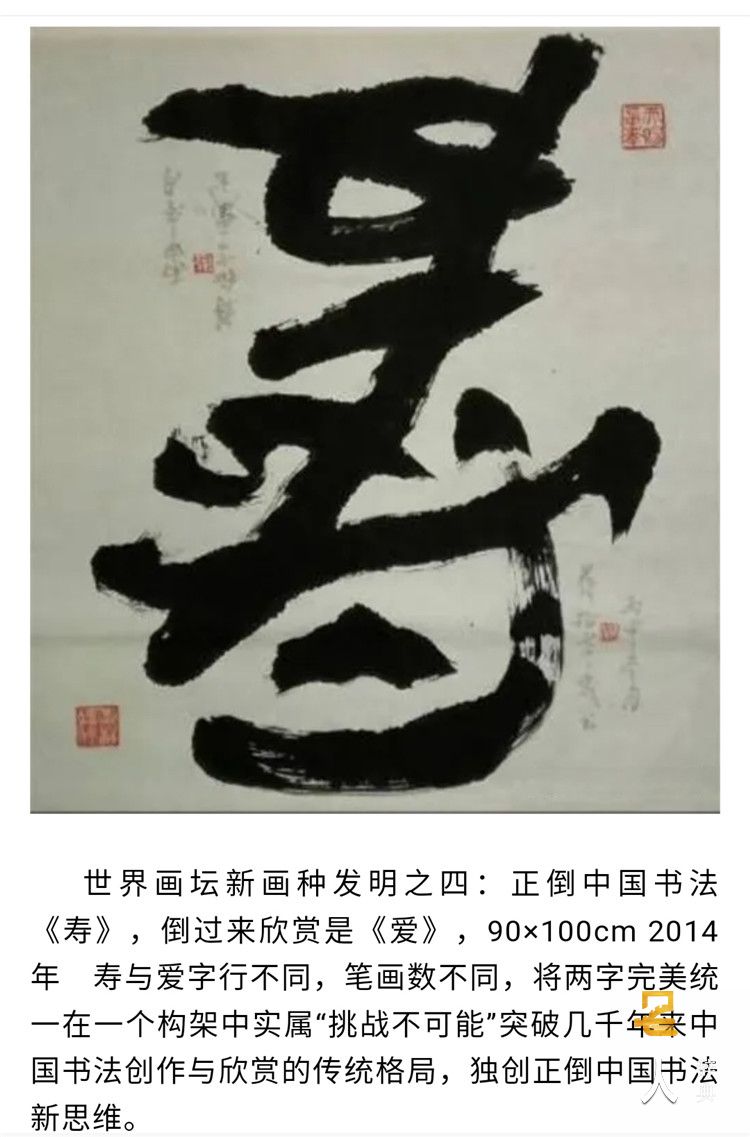 寿
世界画坛新画种发明之四：正倒中国书法
《寿》，倒过来欣赏是《爱》，90×100cm 2014
年 寿与爱字行不同，笔画数不同，将两字完美统
一在一个构架中实属“挑战不可能”突破几千年来中
国书法创作与欣赏的传统格局，独创正倒中国书法
新思维。